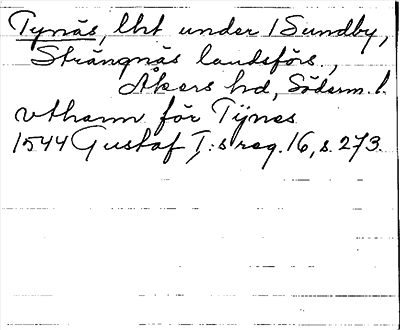 Tynäs, lht under 1 Sundby,
Strängnäs landsförs.,
Åkers hd, Söderm. l.
vthann för Tijnes
1544 Gustaf I:s reg. 16, s. 273.